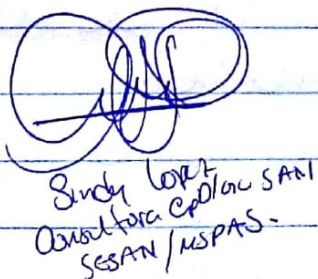 Sindy Lopez
Consultora SAN
SESAN / MSPAS.